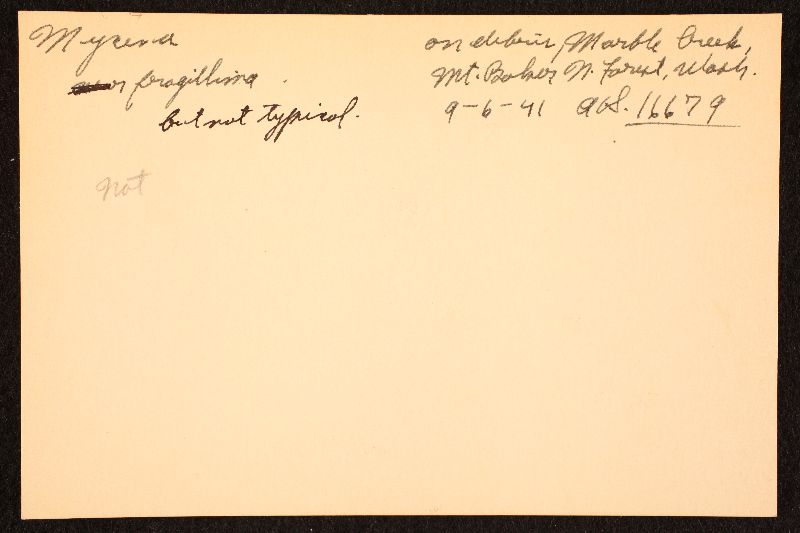 Mycena
fragillima.
but not typical.
on debris, Marble Creek,
Mt. Baker N. Forest, Wash.
9-6-41 AHS. 16679
not